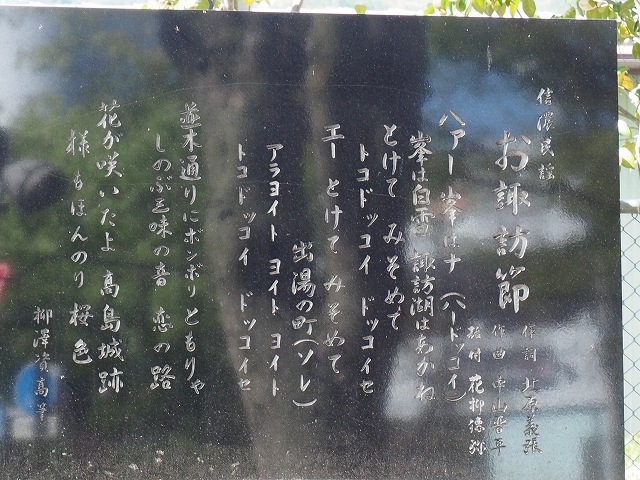 信濃民謡
お諏訪節
作詞 北原義張
作曲 中山晋平
振付 花柳徳弥
ハアー 峯はナ (ハードッコイ)
峯は白雪 諏訪湖はあかね
とけて みそめて
トコドッコイ ドッコイセ
エー とけて みそめて
出湯の町(ソレ)
アラヨイト ヨイト ヨイト
トコドッコイ ドッコイセ
並木通りにボンボリともりゃ
しのぶ三味の音 恋の路
花が咲いたよ 高島城跡
様もほんのり 桜色
柳澤資高筆